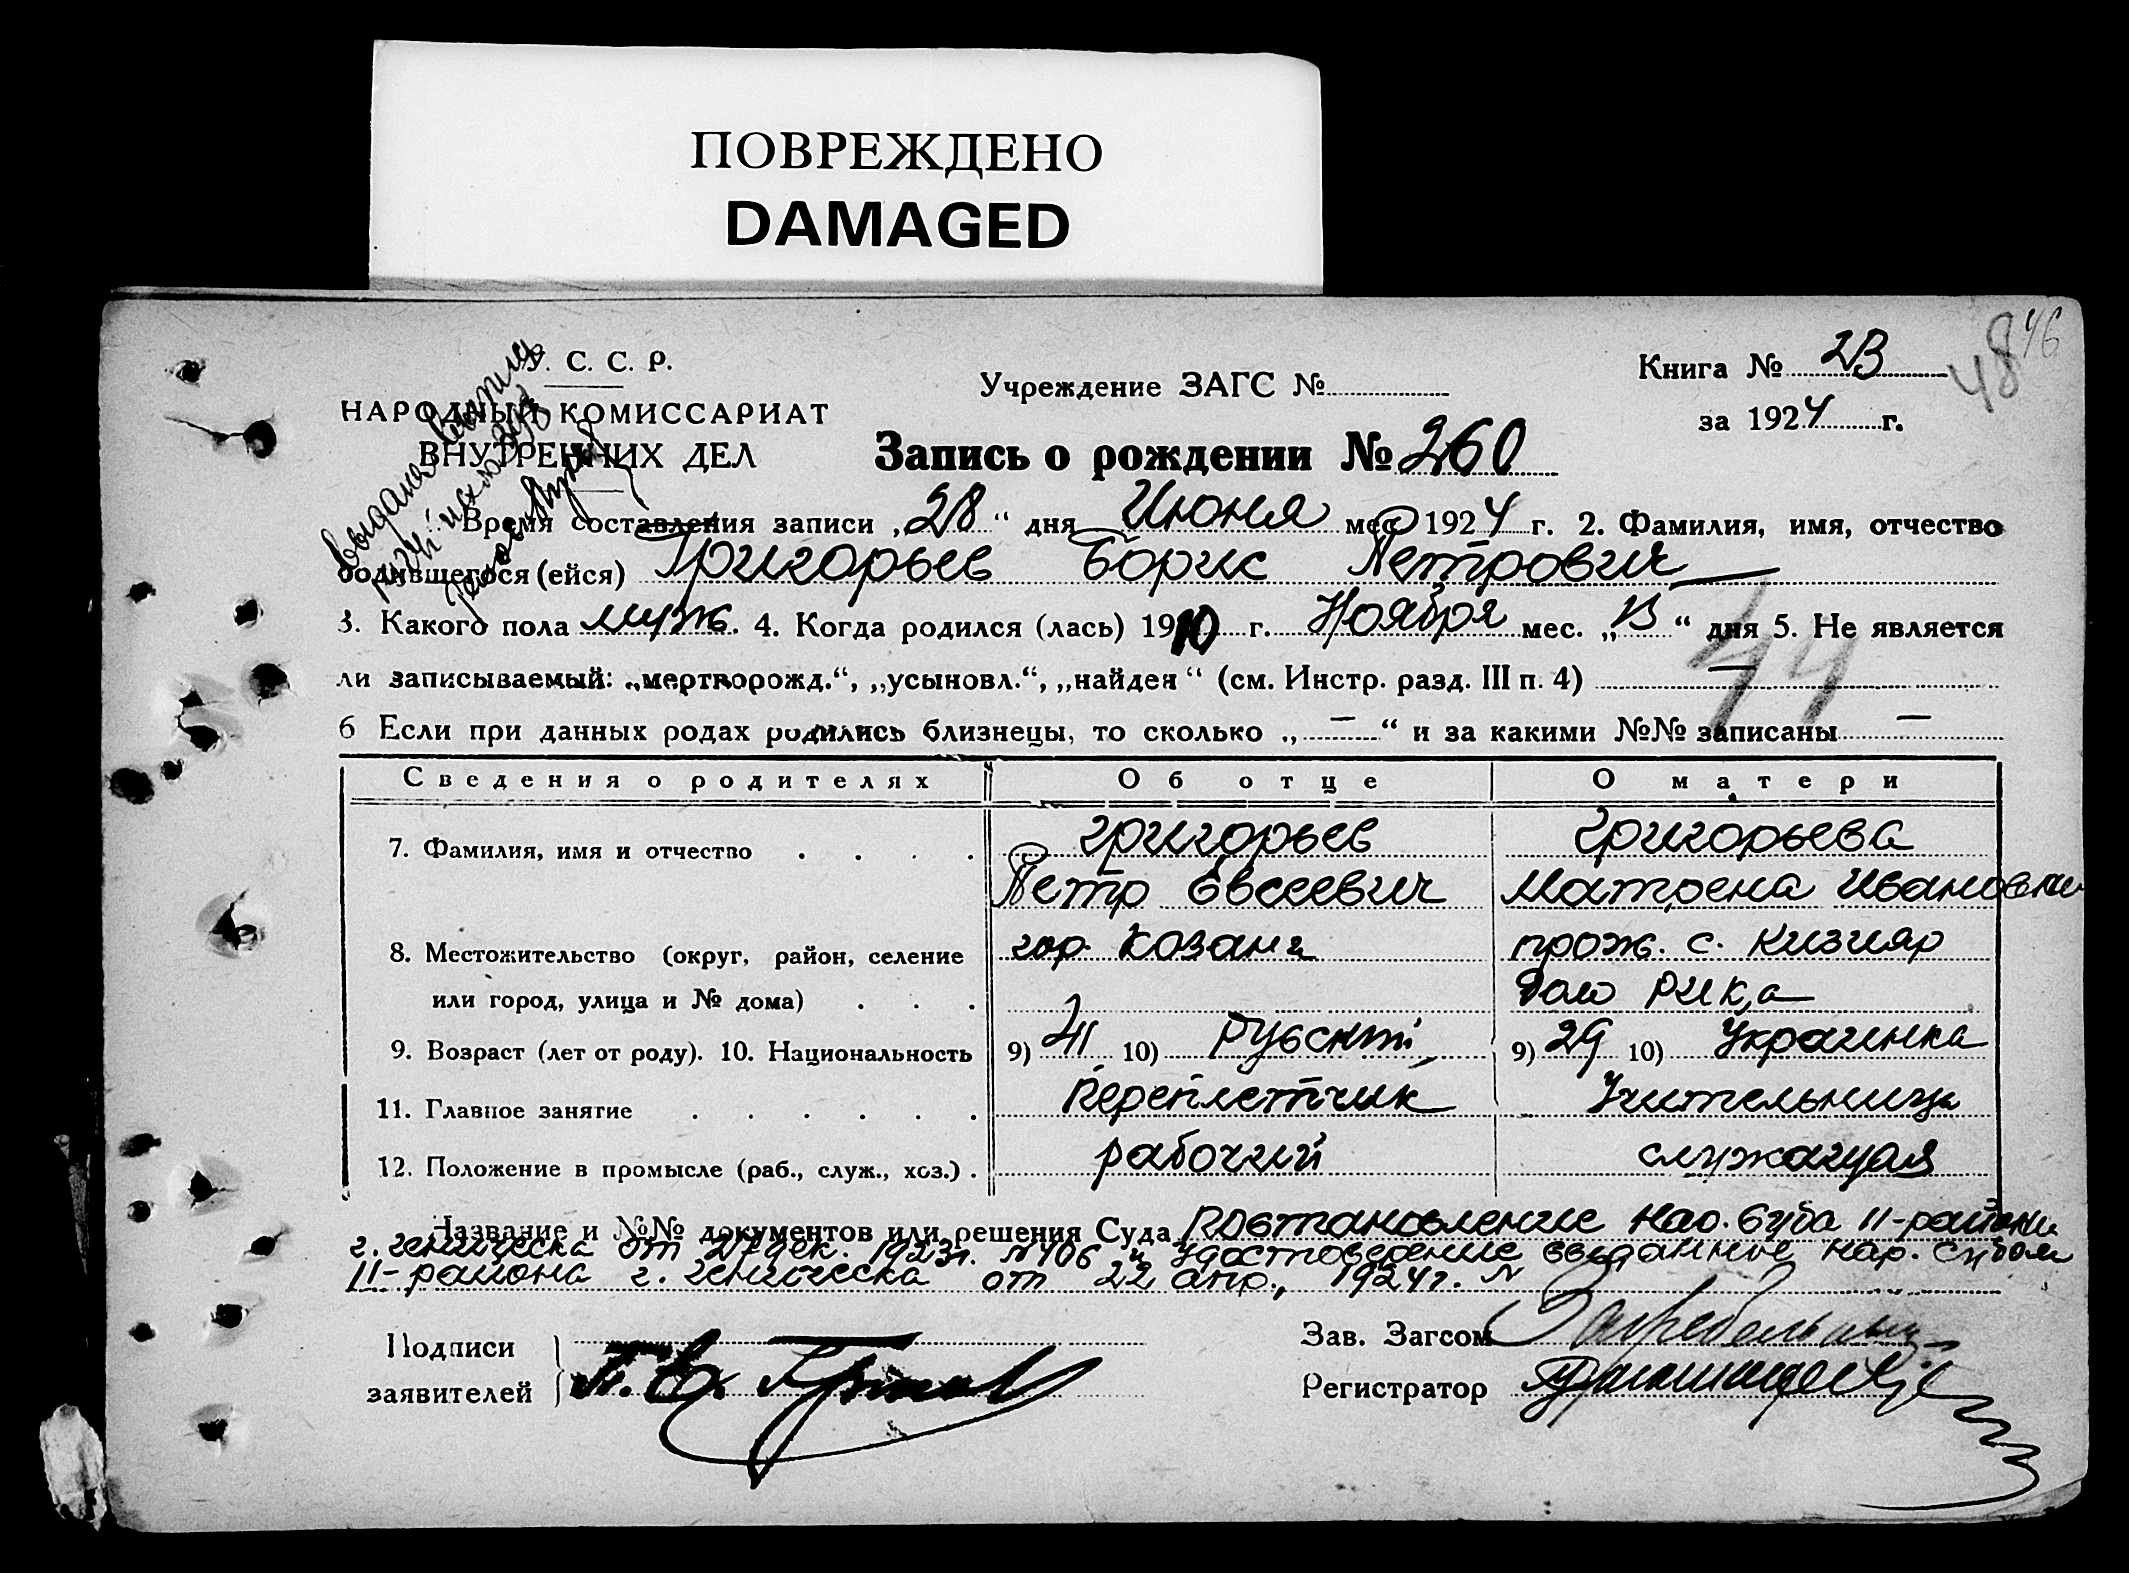 ПОВРЕЖДЕНО
DAMAGED
У. С. С. Р.
НАРОДНЫЙ КОМИССАРИАТ
ВНУТРЕННИХ ДЕЛ
Учреждение ЗАГС №
Книга № 2В
48 46
за 1924 г.
Запись о рождении № 260
Время составления записи „28“ дня Июня мес. 1924 г. 2. Фамилия, имя, отчество
родившегося (ейся) Григорьев Борис Петрович
3. Какого пола муж. 4. Когда родился (лась) 1910 г. Ноября мес. „13“ дня 5. Не является
ли записываемый: „мертворожд.“, „усыновл.“, „найден“ (см. Инстр. разд. III п. 4) —
44
6 Если при данных родах родились близнецы, то сколько „—“ и за какими №№ записаны —
Сведения о родителях Об отце О матери
7. Фамилия, имя и отчество Григорьев Григорьева
Петр Евсеевич Матрена Ивановна
8. Местожительство (округ, район, селение гор. Козань прож. с. Кизияр
или город, улица и № дома) дом Рика
9. Возраст (лет от роду). 10. Национальность 9) 41 10) Русский 9) 29 10) Украинка
11. Главное занятие Переплетчик Учительница
12. Положение в промысле (раб., служ., хоз.) рабочий служащая
Название и №№ документов или решения Суда Постановление Нар. Суда II-района
г. Геническа от 27 дек. 1923 г. № 106 и Удостоверение выданное нар. судом
II-района г. Геническа от 22 апр., 1924 г. №
Подписи
заявителей П. Е.
Зав. Загсом
Регистратор